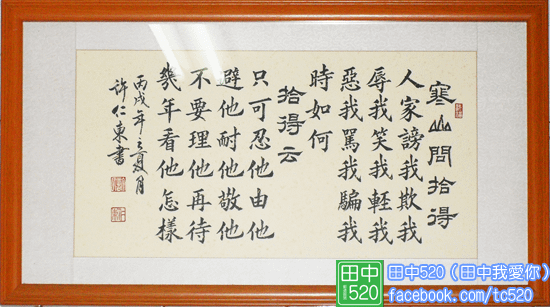 寒山問拾得
人家謗我欺我
辱我笑我輕我
惡我罵我騙我
時如何
拾得云
只可忍他由他
避他耐他敬他
不要理他再待
幾年看他怎樣
丙戌年之夏月
許仁東書
田中
520
田中520（田中我愛你）
facebook.com/tc520